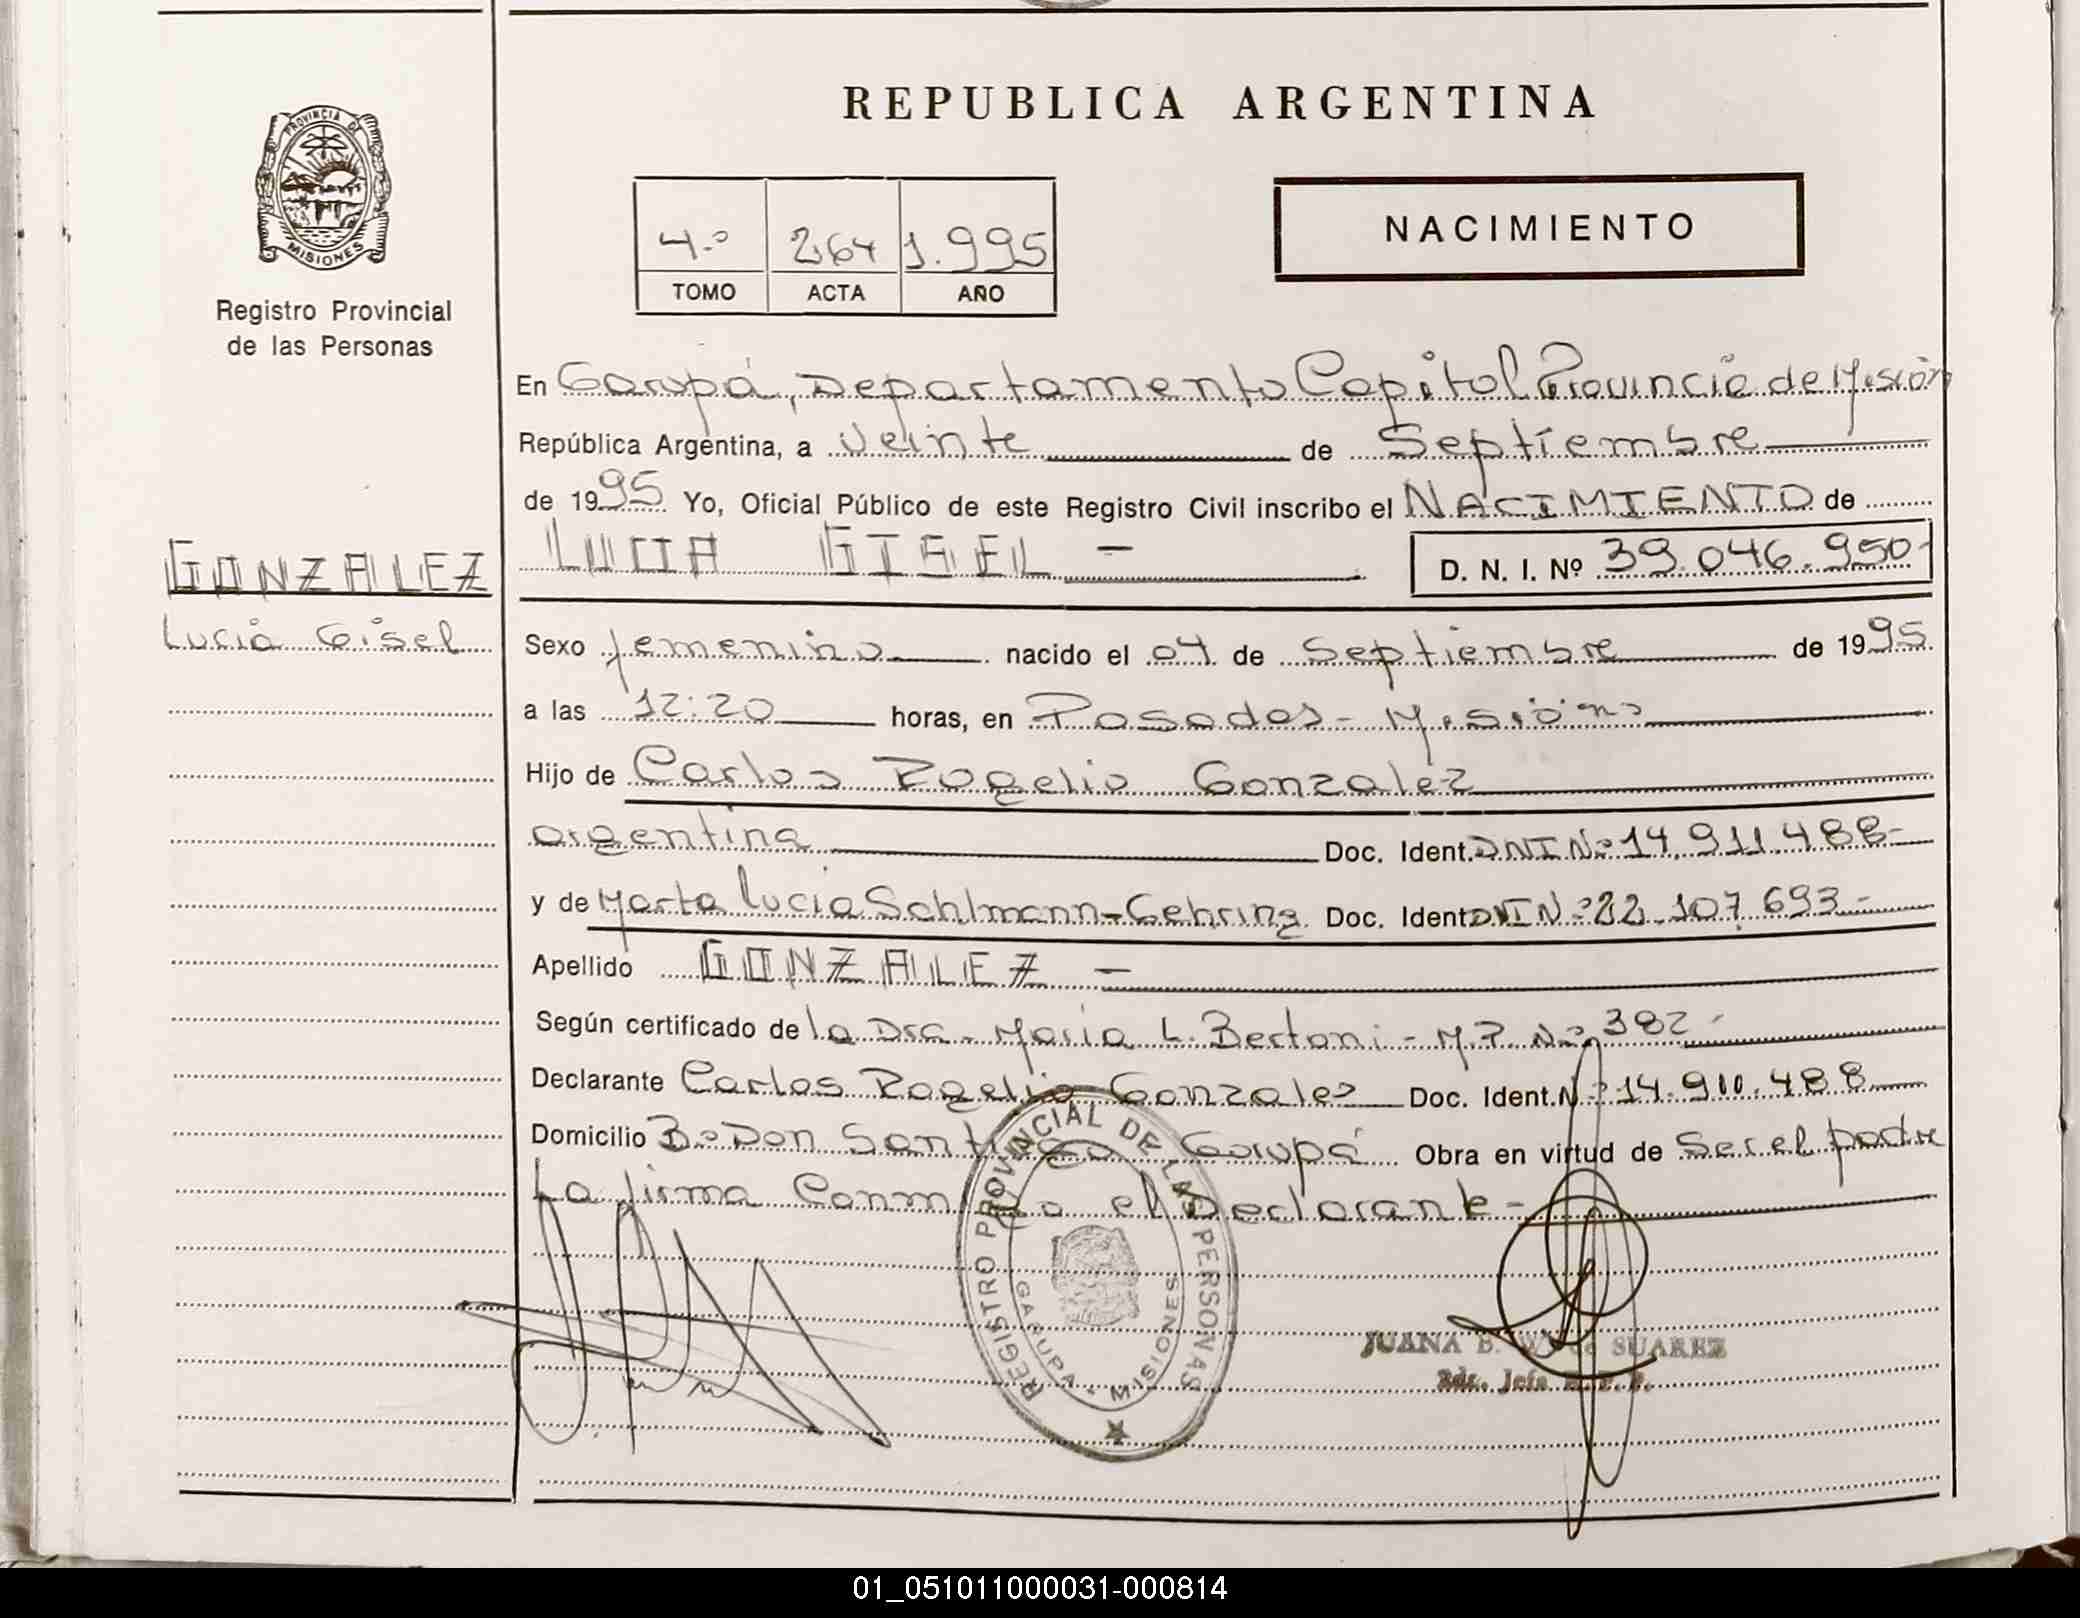 REPUBLICA ARGENTINA
PROVINCIA DE MISIONES
Registro Provincial
de las Personas
4.º 264 1.995
TOMO ACTA AÑO
NACIMIENTO
En Garupá, Departamento Capital Provincia de Mision
República Argentina, a veinte de Septiembre
de 1995 Yo, Oficial Público de este Registro Civil inscribo el NACIMIENTO de
GONZALEZ
Lucia Gisel
LUCIA GISEL — D. N. I. Nº 39.046.950-
Sexo femenino nacido el 04 de Septiembre de 1995
a las 12:20 horas, en Posadas - Misiones
Hijo de Carlos Rogelio Gonzalez
argentina Doc. Ident. DNI Nº 14.911.488-
y de Marta Lucia Sohlmann-Gehring Doc. Ident. DNI Nº 22.107.693-
Apellido GONZALEZ —
Según certificado de la Dra. Maria L. Bertoni - M.P. Nº 382-
Declarante Carlos Rogelio Gonzales Doc. Ident. Nº 14.910.488
Domicilio Bº Don Santiago Garupá Obra en virtud de Ser el padre
La firma Conmigo el Declarante-
REGISTRO PROVINCIAL DE LAS PERSONAS
GARUPA - MISIONES
JUANA B. W. de SUAREZ
Jefa
01_051011000031-000814